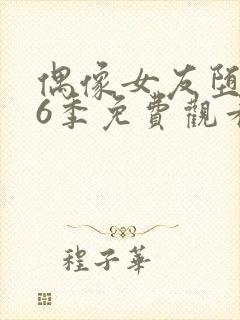 偶像女友堕
6季免費觀看
程子華